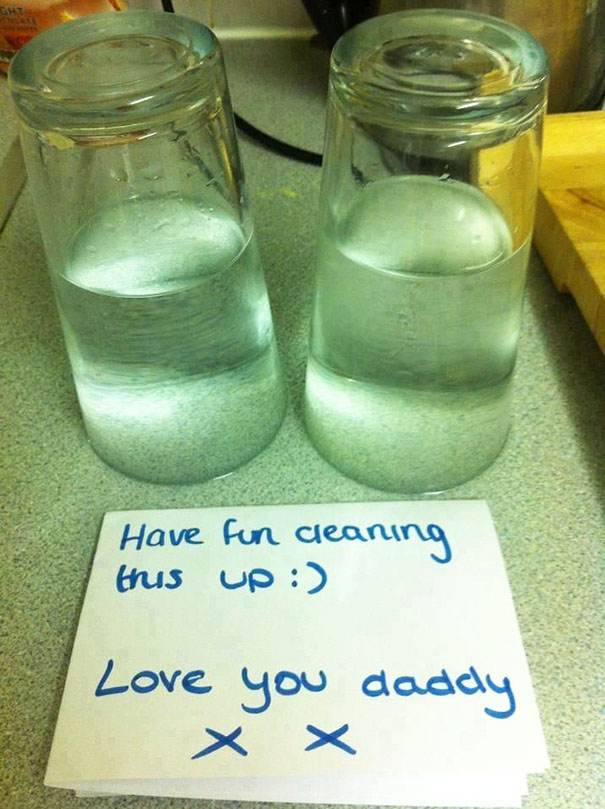 GHT
Have fun cleaning
this up :)
Love you daddy
x x